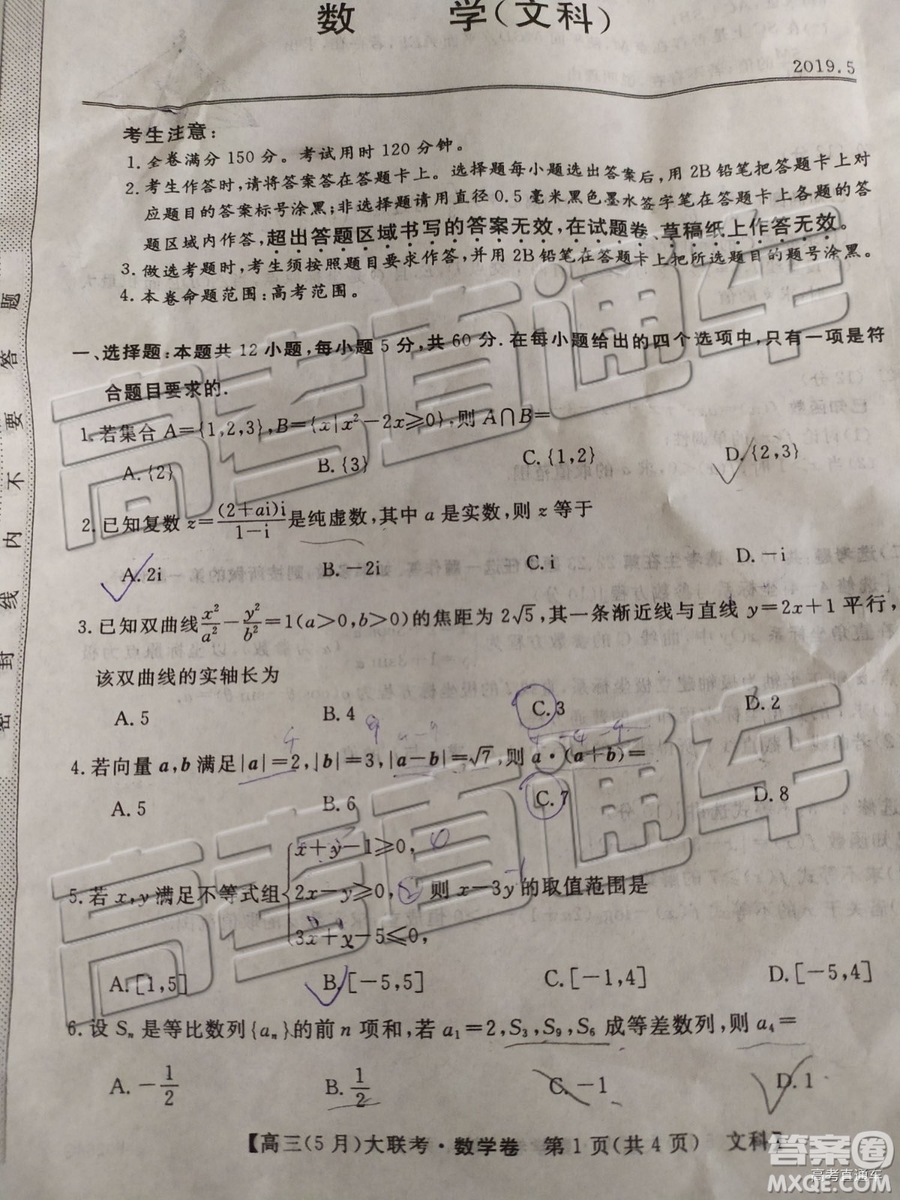 数 学(文科)
2019.5
考生注意:
1.全卷满分150分。考试用时120分钟。
2.考生作答时,请将答案答在答题卡上。选择题每小题选出答案后,用2B铅笔把答题卡上对
应题目的答案标号涂黑;非选择题请用直径0.5毫米黑色墨水签字笔在答题卡上各题的答
题区域内作答,超出答题区域书写的答案无效,在试题卷、草稿纸上作答无效。
3.做选考题时,考生须按照题目要求作答,并用2B铅笔在答题卡上把所选题目的题号涂黑。
4.本卷命题范围:高考范围。
一、选择题:本题共12小题,每小题5分,共60分.在每小题给出的四个选项中,只有一项是符
合题目要求的.
1.若集合A={1,2,3},B={x|x²-2x≥0},则A∩B=
A.{2} B.{3} C.{1,2} D.{2,3}
2.已知复数z=(2+ai)i/(1-i)是纯虚数,其中a是实数,则z等于
A.2i B.-2i C.i D.-i
3.已知双曲线x²/a²-y²/b²=1(a>0,b>0)的焦距为2√5,其一条渐近线与直线y=2x+1平行,
该双曲线的实轴长为
A.5 B.4 C.3 D.2
4.若向量a,b满足|a|=2,|b|=3,|a-b|=√7,则a·(a+b)=
A.5 B.6 C.7 D.8
5.若x,y满足不等式组{x+y-1≥0, 2x-y≥0, 3x+y-5≤0, 则x-3y的取值范围是
A.[1,5] B.[-5,5] C.[-1,4] D.[-5,4]
6.设Sₙ是等比数列{aₙ}的前n项和,若a₁=2,S₃,S₉,S₆成等差数列,则a₄=
A.-1/2 B.1/2 C.-1 D.1
【高三(5月)大联考·数学卷 第1页(共4页) 文科】
密 封 线 内 不 要 答 题
高考直通车
高考直通车
答案圈
MXQE.COM
高考直通车